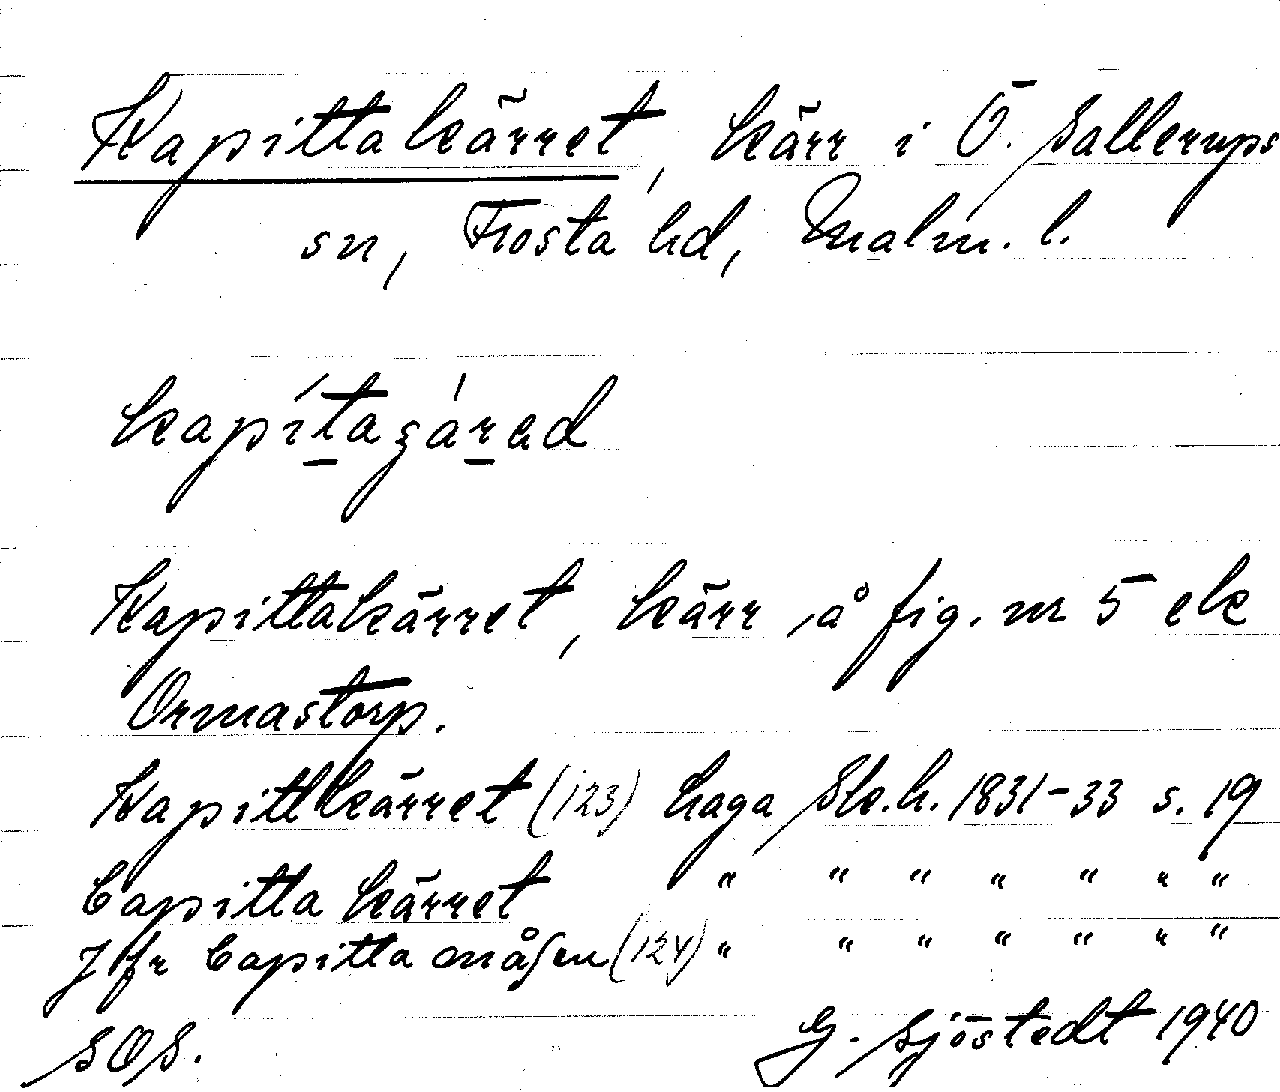 Kapittakärret, kärr i Ö. Sallerups
sn, Frosta hd, Malm. l.
kapítagárəd
Kapittakärret, kärr å fig. nr 5 ek
Ormastorp.
Kapittkärret (123) haga Sk.h. 1831-33 s. 19
Capitta kärret " " " " " " "
Jfr Capitta måsen (124) " " " " " " "
SOS. G. Sjöstedt 1940